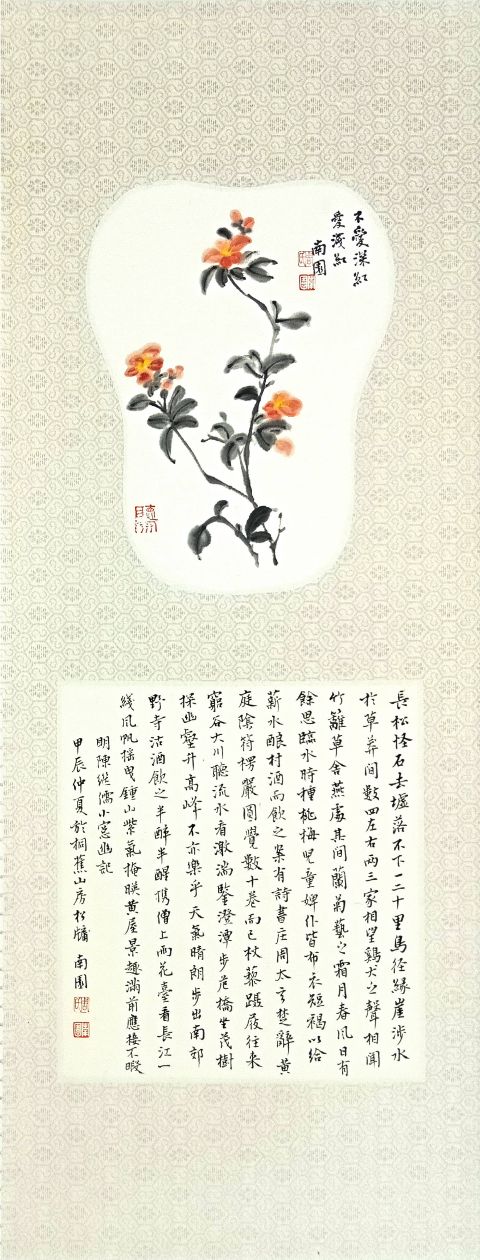 不愛深紅
愛淺紅
南園
長松怪石去墟落不下一二十里鳥徑緣崖涉水
於草莽間數四左右兩三家相望鷄犬之聲相聞
竹籬草舍燕處其間蘭菊藝之霜月春風日有
餘思臨水時種桃梅兒童婢仆皆布衣短褐以給
薪水釀村酒而飲之案有詩書莊周太玄楚辭黃
庭陰符楞嚴圓覺數十卷而已杖藜躡屐往來
窮谷大川聽流水看激湍鑒澄潭步危橋坐茂樹
探幽壑升高峰不亦樂乎天氣晴朗步出南郊
野寺沽酒飲之半醉半醒攜僧上雨花臺看長江一
綫風帆搖曳鍾山紫氣掩映黃屋景趣滿前應接不暇
明陳繼儒小窗幽記
甲辰仲夏於桐蕉山房松牖南園